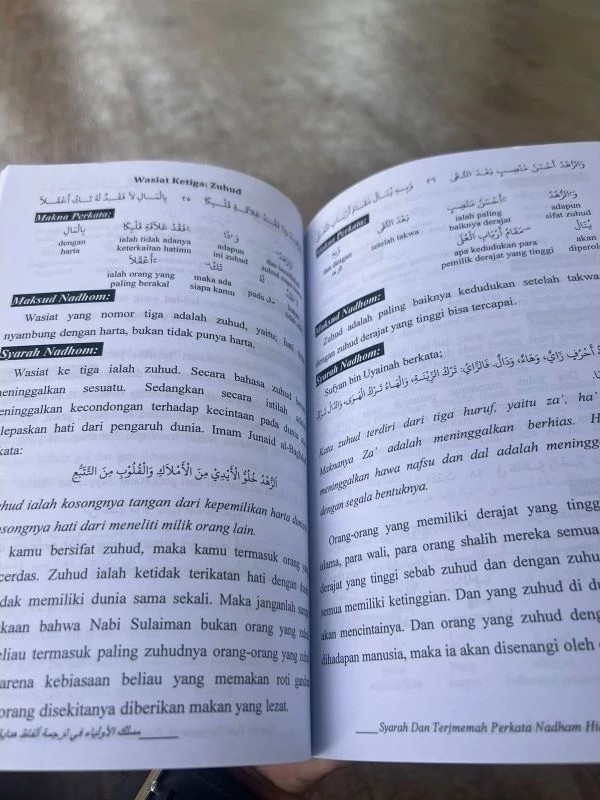 Wasiat Ketiga: Zuhud
٢٥ بِالْمَالِ لَا فَقْدٌ لَهُ تَكُ أَعْقَلَا
Makna Perkata:
بِالْمَالِ
فَقْدُ عَلَاقَةِ قَلْبِكَا
وَذَا
dengan harta
ialah tidak adanya keterkaitan hatimu
adapun ini zuhud
أَعْقَلَا
تَكُ
لَهُ
ialah orang yang paling berakal
maka ada siapa kamu
pada
Maksud Nadhom:
Wasiat yang nomor tiga adalah zuhud, yaitu; hati
nyambung dengan harta, bukan tidak punya harta.
Syarah Nadhom:
Wasiat ke tiga ialah zuhud. Secara bahasa zuhud
meninggalkan sesuatu. Sedangkan secara istilah
meninggalkan kecondongan terhadap kecintaan pada dunia
lepaskan hati dari pengaruh dunia. Imam Junaid
kata:
اَلزُّهْدُ خُلُوُّ الْأَيْدِيْ مِنَ الْأَمْلَاكِ وَالْقُلُوْبِ مِنَ التَّتَبُّعِ
uhud ialah kosongnya tangan dari kepemilikan harta
osongnya hati dari meneliti milik orang lain.
kamu bersifat zuhud, maka kamu termasuk orang
cerdas. Zuhud ialah ketidak terikatan hati dengan
dak memiliki dunia sama sekali. Maka janganlah
kaan bahwa Nabi Sulaiman bukan orang yang
eliau termasuk paling zuhudnya orang-orang yang
arena kebiasaan beliau yang memakan roti
orang disekitanya diberikan makan yang lezat.
مسلك الأولياء في ترجمة ألفاظ هداية
وَالزُّهْدُ أَحْسَنُ مَنْصِبٍ بَعْدَ التُّقَى ٢٦
Makna Perkata:
وَالزُّهْدُ
أَحْسَنُ مَنْصِبٍ
بَعْدَ التُّقَى
adapun sifat zuhud
ialah paling baiknya derajat
setelah takwa
يُنَالُ
مَقَامُ أَرْبَابِ الْعُلَى
وَبِهِ
akan
apa kedudukan para pemilik derajat yang tinggi
dan dengan
Maksud Nadhom:
Zuhud adalah paling baiknya kedudukan setelah takwa
dengan zuhud derajat yang tinggi bisa tercapai.
Syarah Nadhom:
Sufyan bin Uyainah berkata;
أَحْرُفٍ زَايٌ، وَهَاءٌ، وَدَالٌ. فَالزَّايُ: تَرْكُ الزِّيْنَةِ، وَالْهَاءُ تَرْكُ الْهَوَى، وَالدَّالُ تَرْكُ
Kata zuhud terdiri dari tiga huruf, yaitu za', ha'
Maknanya Za' adalah meninggalkan berhias. H
meninggalkan hawa nafsu dan dal adalah
dengan segala bentuknya.
Orang-orang yang memiliki derajat yang
ulama, para wali, para orang shalih mereka semua
derajat yang tinggi sebab zuhud dan dengan
semua memiliki ketinggian. Dan yang zuhud di
akan mencintainya. Dan orang yang zuhud
dihadapan manusia, maka ia akan disenangi oleh
Syarah Dan Terjmemah Perkata Nadham